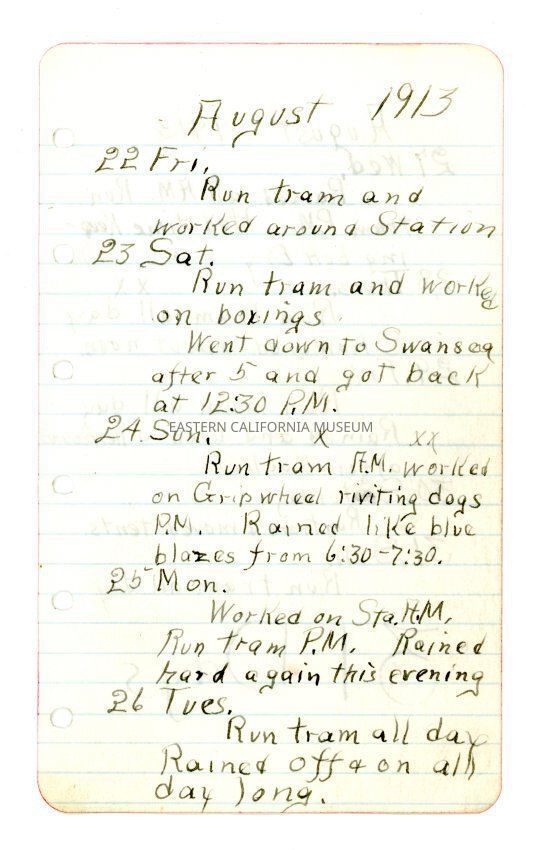 August 1913
22 Fri.
Run tram and
worked around Station
23 Sat.
Run tram and worked
on boxings.
Went down to Swansea
after 5 and got back
at 12.30 P.M.
24. Sun. X XX
EASTERN CALIFORNIA MUSEUM
Run tram A.M. worked
on Grip wheel riviting dogs
P.M. Rained like blue
blazes from 6:30-7:30.
25 Mon.
Worked on Sta. A.M.
Run tram P.M. Rained
hard again this evening
26 Tues.
Run tram all day
Rained off & on all
day long.